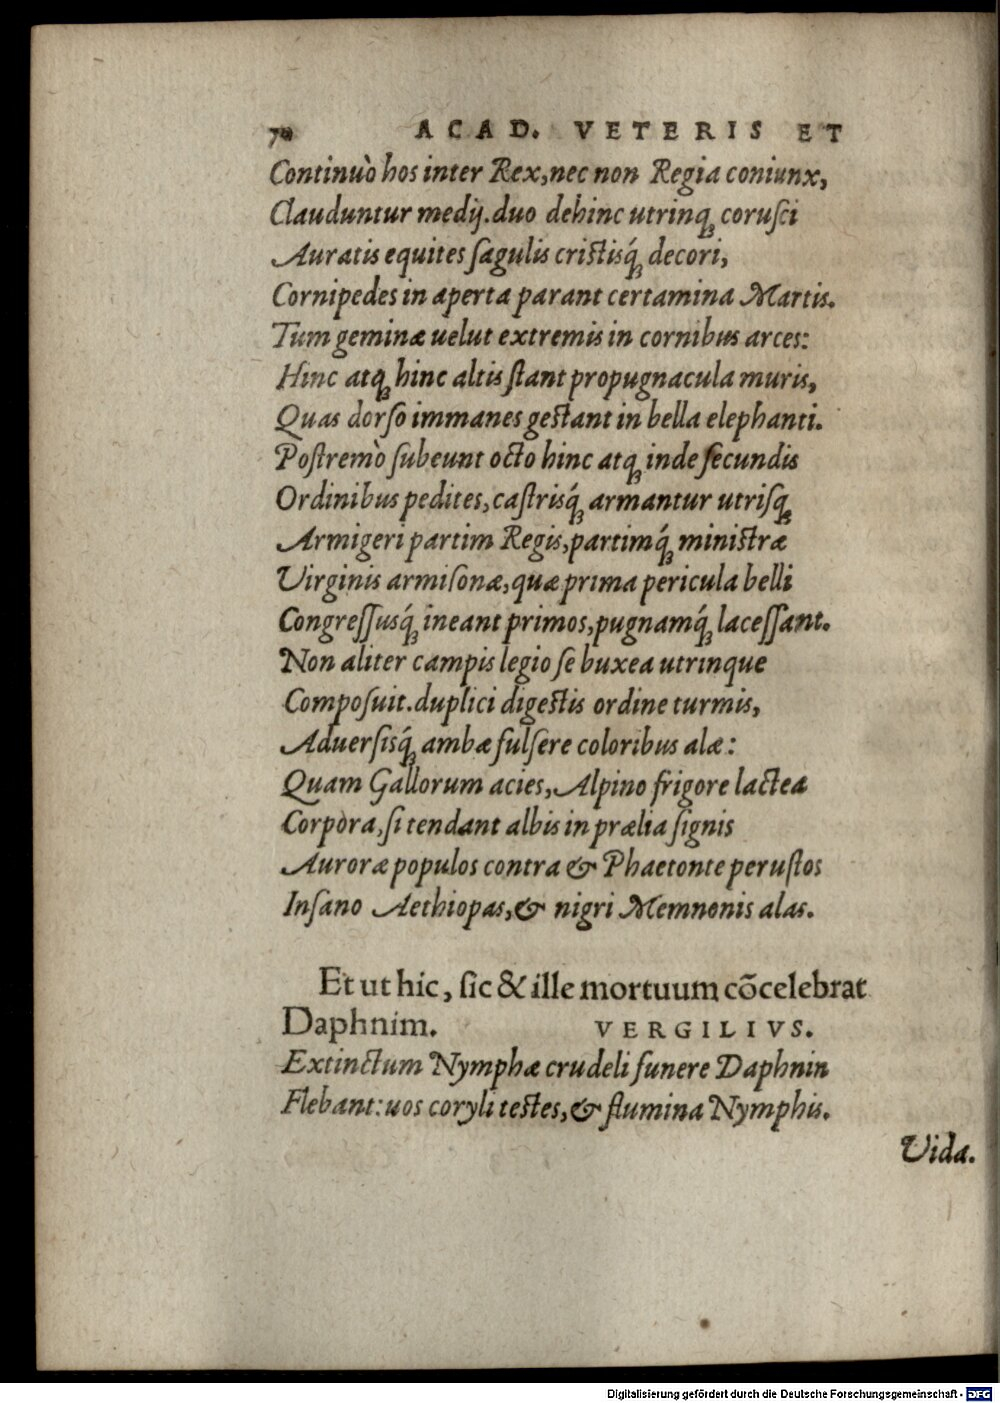 70 ACAD. VETERIS ET
Continuò hos inter Rex, nec non Regia coniunx,
Clauduntur medij. duo dehinc utrinq; corusci
Auratis equites sagulis cristisq́; decori,
Cornipedes in aperta parant certamina Martis.
Tum geminæ uelut extremis in cornibus arces:
Hinc atq; hinc altis stant propugnacula muris,
Quas dorso immanes gestant in bella elephanti.
Postremò subeunt octo hinc atq; inde secundis
Ordinibus pedites, castrisq́; armantur utrisq;
Armigeri partim Regis, partimq́; ministræ
Virginis armisonæ, quæ prima pericula belli
Congressusq́; ineant primos, pugnamq́; lacessant.
Non aliter campis legio se buxea utrinque
Composuit. duplici digestis ordine turmis,
Aduersisq́; ambæ fulsere coloribus alæ:
Quam Gallorum acies, Alpino frigore lactea
Corpora, si tendant albis in prælia signis
Auroræ populos contra & Phaetonte perustos
Insano Aethiopas, & nigri Memnonis alas.
Et ut hic, sic & ille mortuum cõcelebrat
Daphnim. VERGILIVS.
Extinctum Nymphæ crudeli funere Daphnin
Flebant: uos coryli testes, & flumina Nymphis.
Vida.
Digitalisierung gefördert durch die Deutsche Forschungsgemeinschaft - DFG